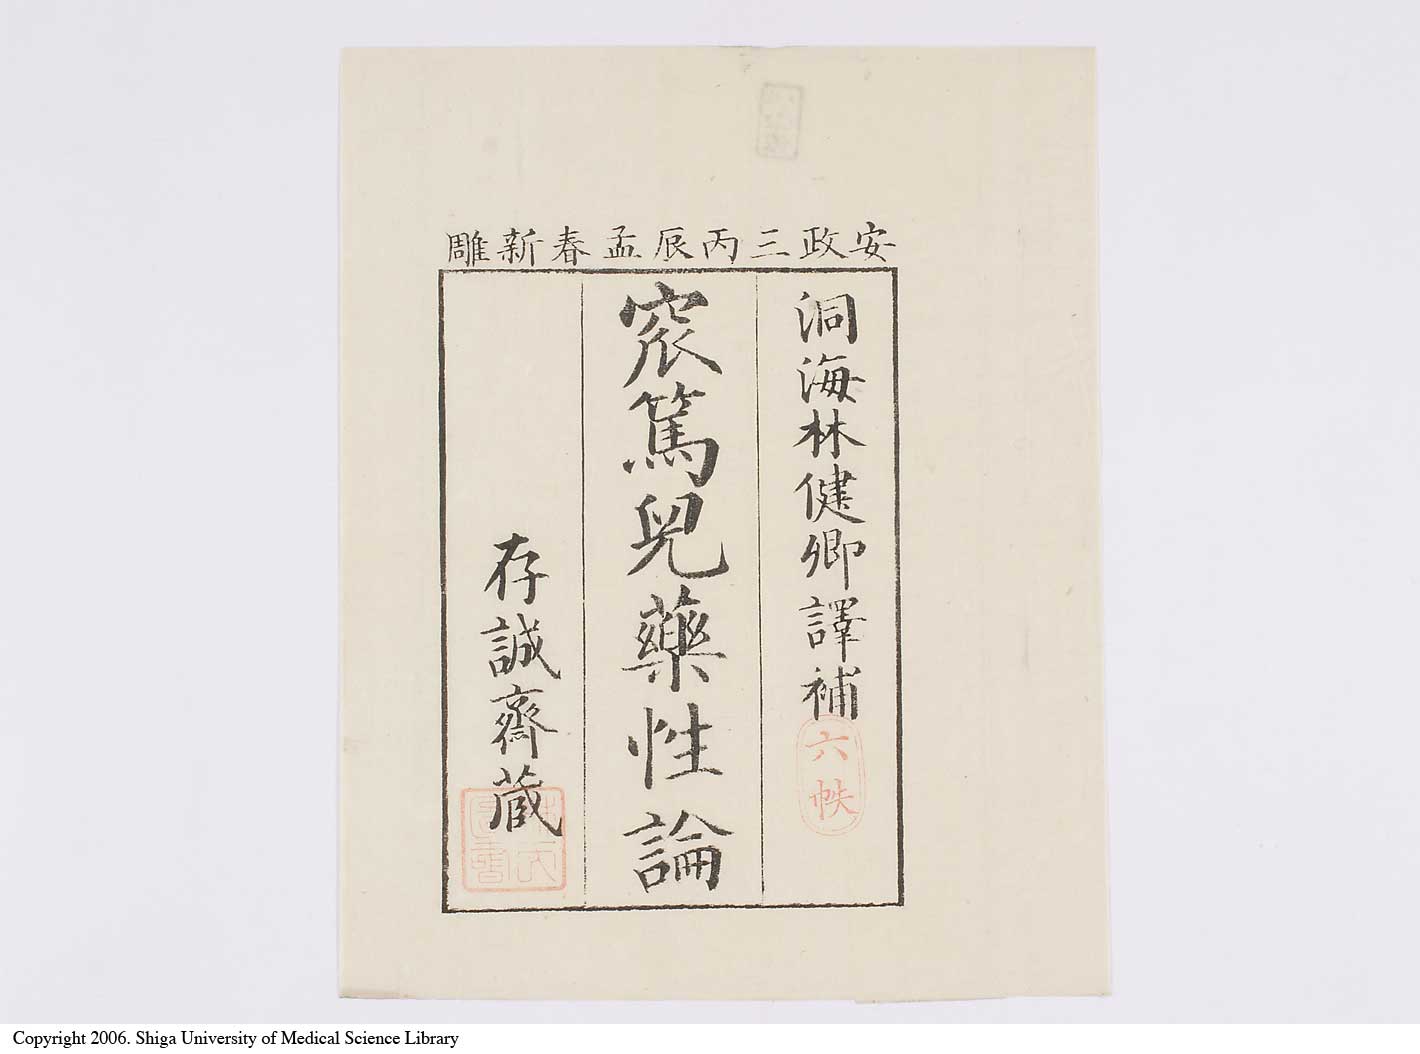 安政三丙辰孟春新雕
洞海林健卿譯補
六帙
窊篤兒藥性論
存誠齋蔵
林氏圖書
Copyright 2006. Shiga University of Medical Science Library